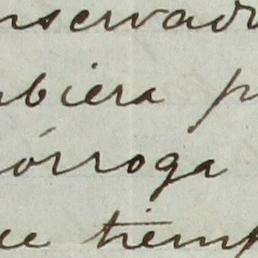 nservado
ubiera p
órroga
ue tiemp